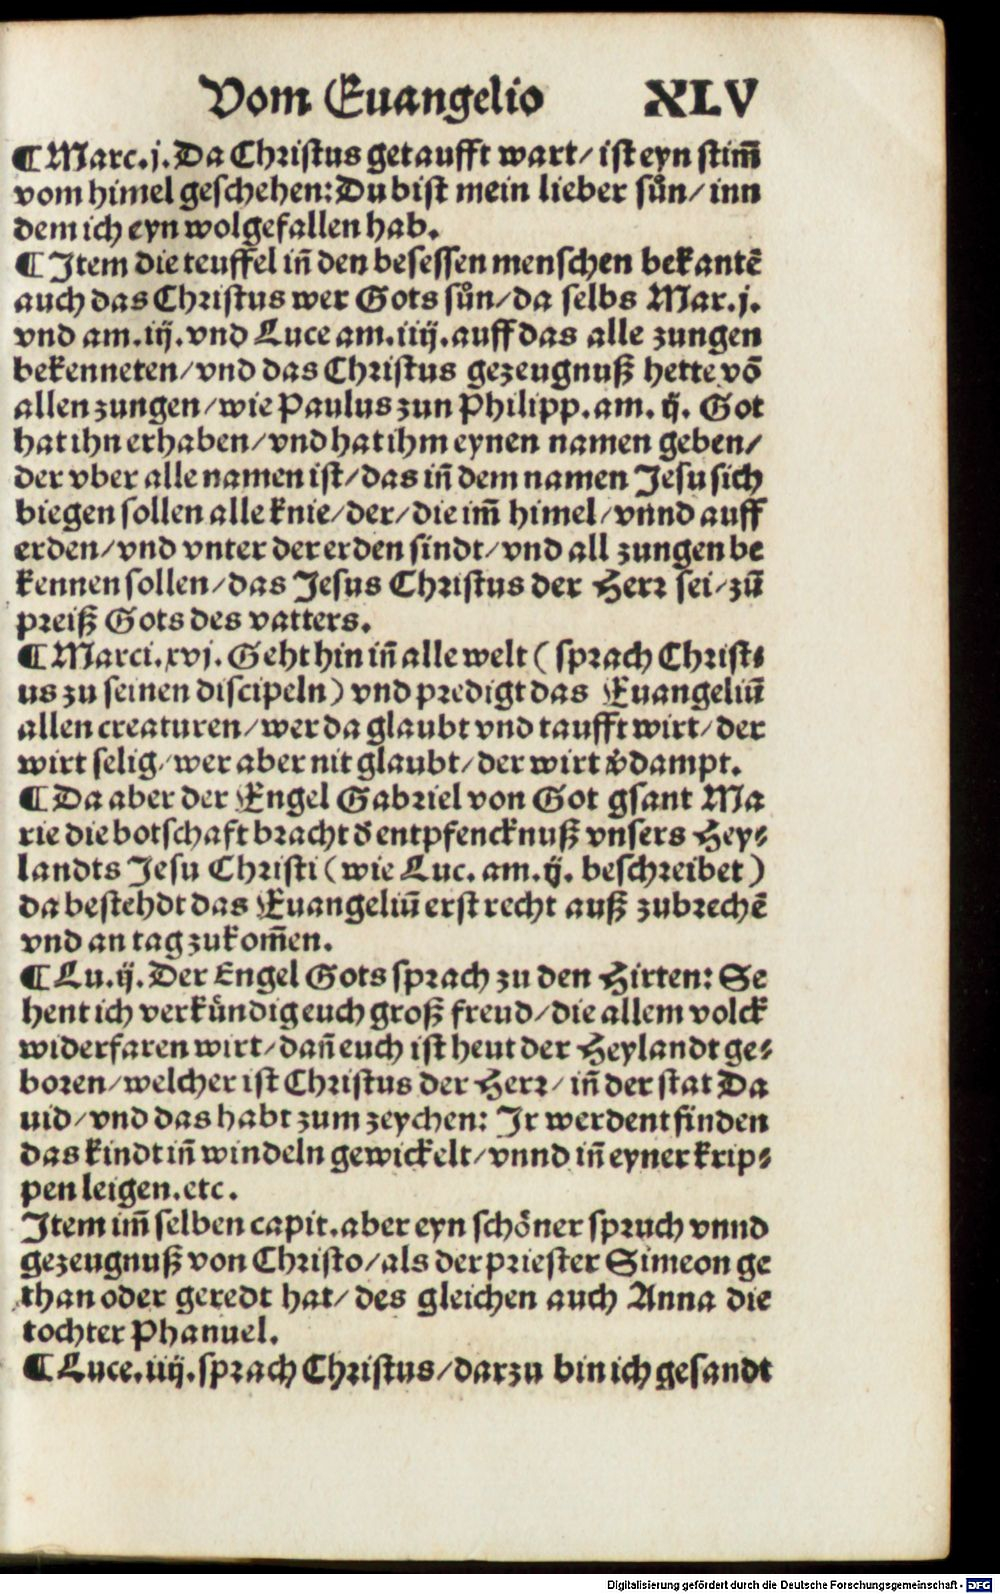 Vom Euangelio XLV
¶ Marc.j. Da Christus getaufft wart/ ist eyn stim̃
vom himel geschehen: Du bist mein lieber sůn/ inn
dem ich eyn wolgefallen hab.
¶ Item die teuffel iñ den besessen menschen bekantẽ
auch das Christus wer Gots sůn/ da selbs Mar.j.
vnd am.iij.vnd Luce am.iiij.auff das alle zungen
bekenneten/ vnd das Christus gezeugnuß hette võ
allen zungen/ wie Paulus zun Philipp.am.ij. Got
hat ihn erhaben/ vnd hat ihm eynen namen geben/
der vber alle namen ist/ das iñ dem namen Jesu sich
biegen sollen alle knie/ der/ die im̃ himel/ vnnd auff
erden/ vnd vnter der erden sindt/ vnd all zungen be
kennen sollen/ das Jesus Christus der Herr sei/ zũ
preiß Gots des vatters.
¶ Marci.xvj. Geht hin iñ alle welt ( sprach Christ⸗
us zu seinen discipeln ) vnd predigt das Euangeliũ
allen creaturen/ wer da glaubt vnd taufft wirt/ der
wirt selig/ wer aber nit glaubt/ der wirt v̓dampt.
¶ Da aber der Engel Gabriel von Got gsant Ma
rie die botschafft bracht d̓ entpfencknuß vnsers Hey⸗
landts Jesu Christi ( wie Luc. am.ij. beschreibet )
da bestehdt das Euangeliũ erst recht auß zubrechẽ
vnd an tag zukom̃en.
¶ Lu.ij. Der Engel Gots sprach zu den Hirten: Se
hent ich verkůndig euch groß freud/ die allem volck
widerfaren wirt/ dañ euch ist heut der Heylandt ge⸗
boren/ welcher ist Christus der Herr/ iñ der stat Da
uid/ vnd das habt zum zeychen: Ir werdent finden
das kindt iñ windeln gewickelt/ vnnd iñ eyner krip⸗
pen leigen.etc.
Item im̃ selben capit.aber eyn schöner spruch vnnd
gezeugnuß von Christo/ als der priester Simeon ge
than oder geredt hat/ des gleichen auch Anna die
tochter Phanuel.
¶ Luce.iiij.sprach Christus/ darzu bin ich gesandt
Digitalisierung gefördert durch die Deutsche Forschungsgemeinschaft - DFG